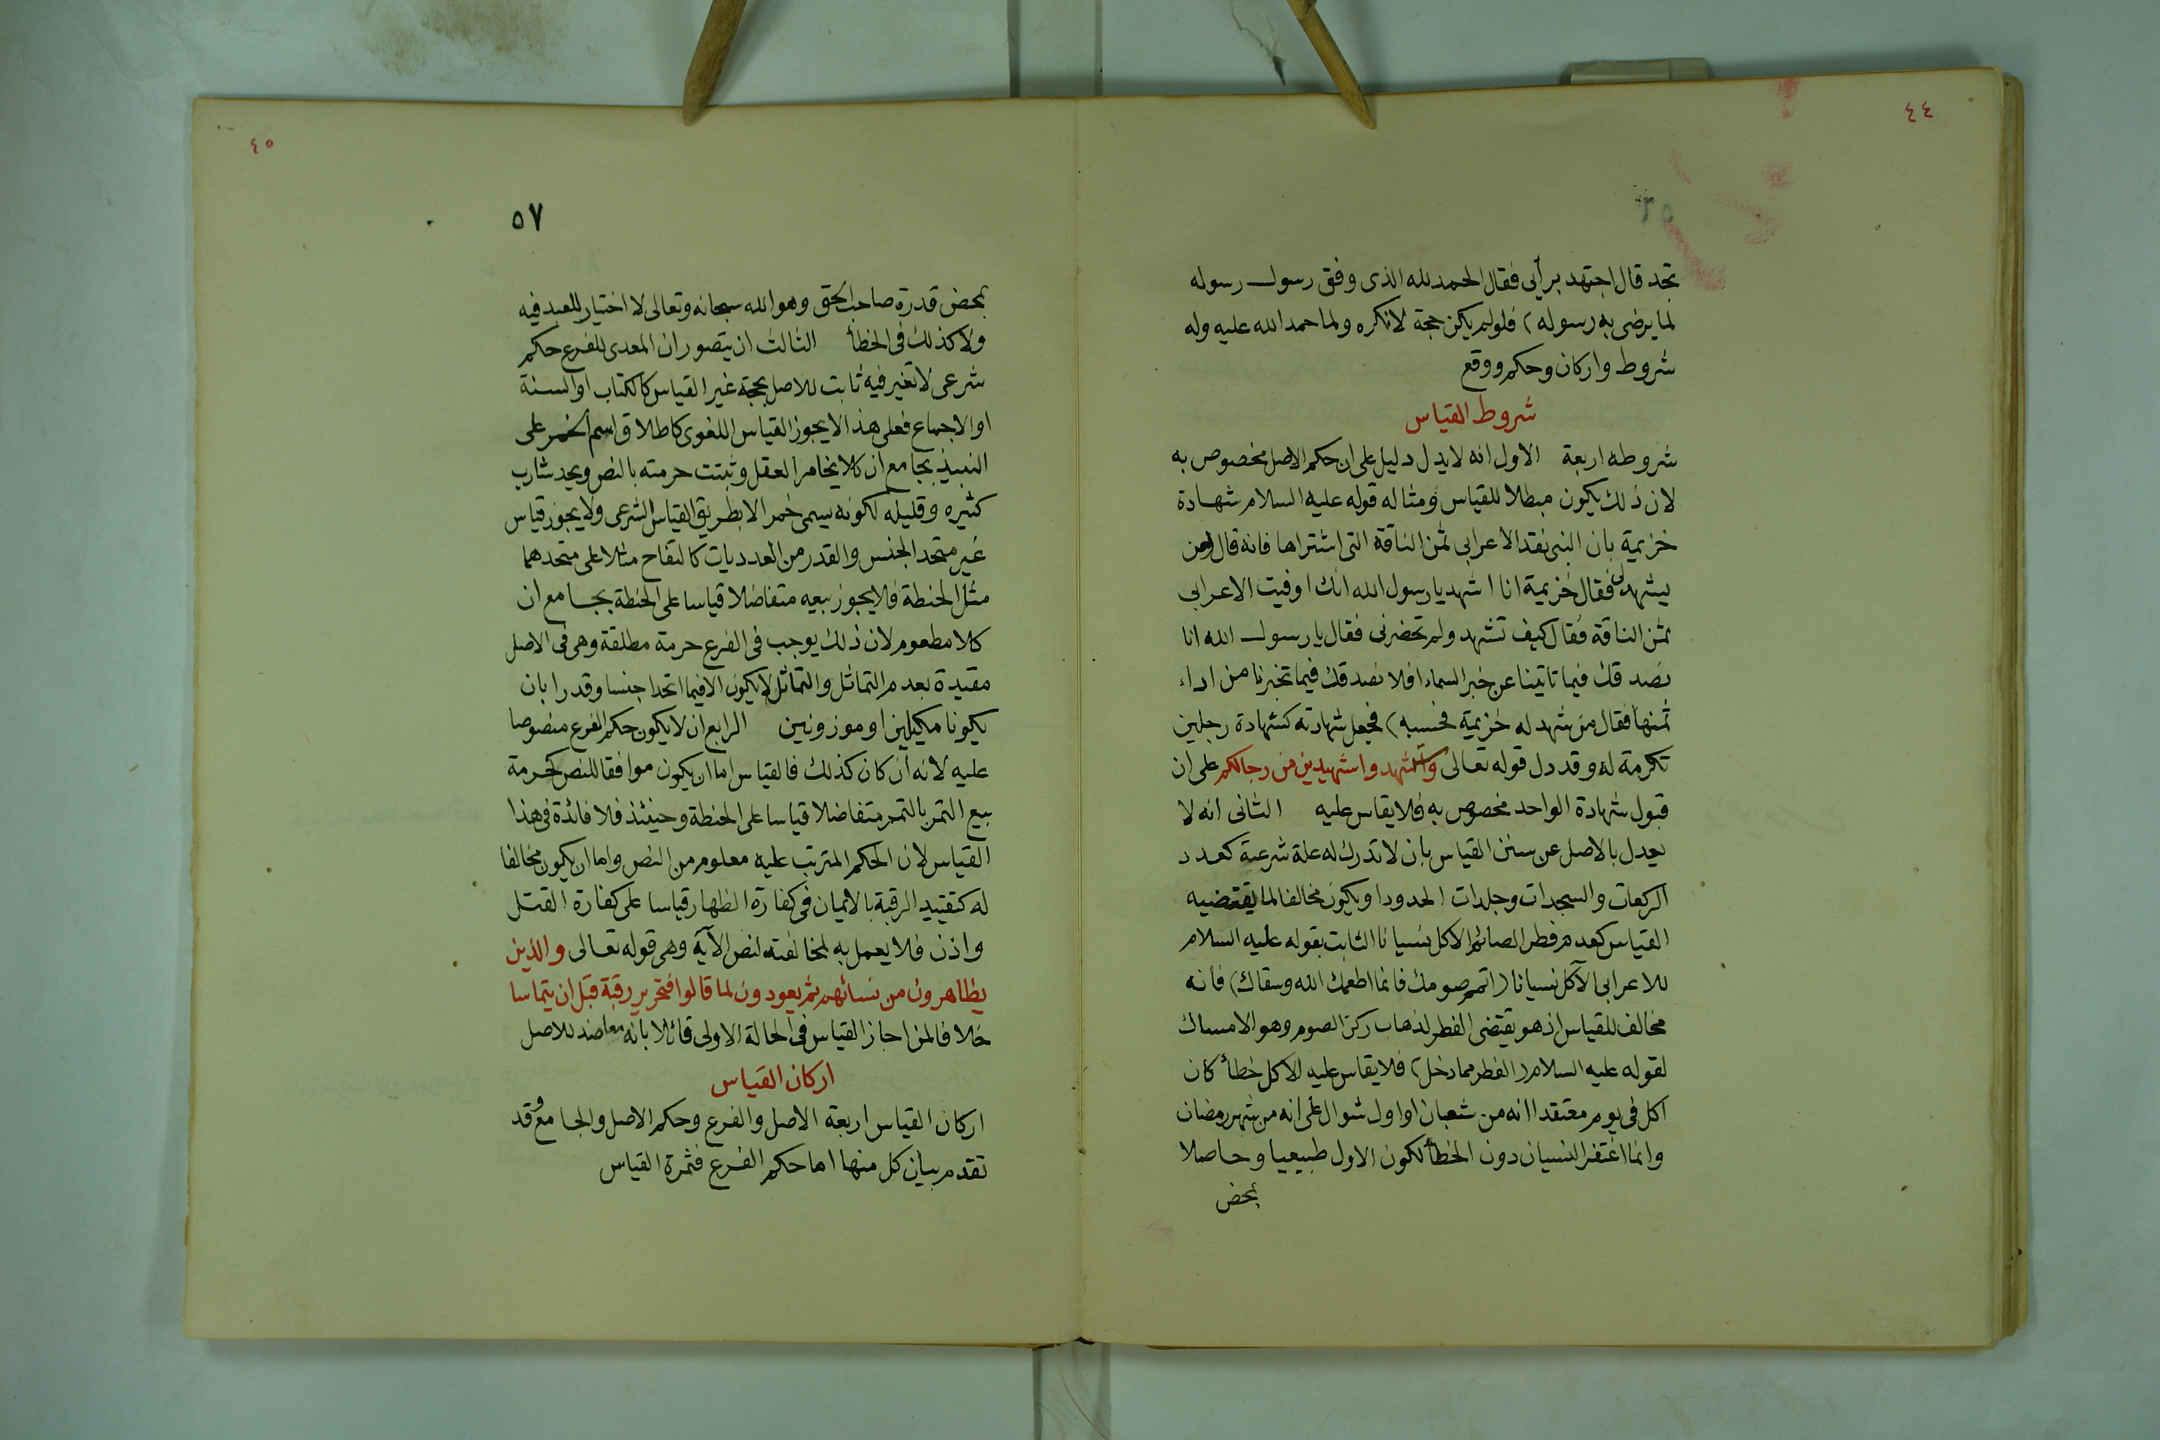 ٤٤
٥٦
تجد قال اجتهد برأيى فقال الحمد لله الذى وفق رسول رسوله
لما يرضى به رسوله) فلو لم يكن حجة لانكره ولما حمد الله عليه وله
شروط واركان وحكم ووقع
شروط القياس
شروطه اربعة الاول انه لا يدل دليل على ان حكم الاصل مخصوص به
لان ذلك يكون مبطلا للقياس ومثاله قوله عليه السلام شهادة
خزيمة بان النبى نقد الاعرابى ثمن الناقة التى اشتراها فانه قال لمن
يشهد لى فقال خزيمة انا اشهد يا رسول الله انك اوفيت الاعرابى
ثمن الناقة فقال كيف تشهد ولم تحضرنى فقال يا رسول الله انا
نصدقك فيما تاتينا عن خبر السماء افلا نصدقك فيما تخبرنا من اداء
ثمنها فقال من شهد له خزيمة فحسبه) فجعل شهادته كشهادة رجلين
تكرمة له وقد دل قوله تعالى واستشهدوا شهيدين من رجالكم على ان
قبول شهادة الواحد مخصوص به فلا يقاس عليه الثانى انه لا
يعدل بالاصل عن سنن القياس بان لا تدرك له علة شرعية كعدد
الركعات والسجدات وجلدات الحدود او يكون مخالفا لما يقتضيه
القياس كعدم فطر الصائم الاكل نسيانا الثابت بقوله عليه السلام
للاعرابى الآكل نسيانا (اتمم صومك فانما اطعمك الله وسقاك) فانه
مخالف للقياس اذ هو يقتضى الفطر لذهاب ركن الصوم وهو الامساك
لقوله عليه السلام (الفطر مما دخل) فلا يقاس عليه الاكل خطأ كان
اكل فى يوم معتقدا انه من شعبان او اول شوال على انه من شهر رمضان
وانما اغتفر النسيان دون الخطأ لكون الاول طبيعيا وحاصلا
بمحض
٤٥
٥٧
بمحض قدرة صاحب الحق وهو الله سبحانه وتعالى لا اختيار للعبد فيه
ولا كذلك فى الخطأ الثالث ان يتصور ان المعدى للفرع حكم
شرعى لا تغير فيه ثابت للاصل بحجة غير القياس كالكتاب او السنة
او الاجماع فعلى هذا لا يجوز القياس اللغوى كاطلاق اسم الخمر على
النبيذ بجامع ان كلا يخامر العقل وثبتت حرمته بالنص ويحد شارب
كثيره وقليله لكونه يسمى خمر الا بطريق القياس الشرعى ولا يجوز قياس
غير متحد الجنس والقدر من العدديات كالتفاح مثلا على متحدهما
مثل الحنطة فلا يجوز بيعه متفاضلا قياسا على الحنطة بجامع ان
كلا مطعوم لان ذلك يوجب فى الفرع حرمة مطلقة وهى فى الاصل
مقيدة بعدم التماثل والتماثل لا يكون الا فيما اتحدا جنسا وقدرا بان
يكونا مكيلين او موزونين الرابع ان لا يكون حكم الفرع منصوصا
عليه لانه ان كان كذلك فالقياس اما ان يكون موافقا للنص كحرمة
بيع التمر بالتمر متفاضلا قياسا على الحنطة وحينئذ فلا فائدة فى هذا
القياس لان الحكم المترتب عليه معلوم من النص واما ان يكون مخالفا
له كتقييد الرقبة بالايمان فى كفارة الظهار قياسا على كفارة القتل
واذن فلا يعمل به لمخالفته لنص الآية وهى قوله تعالى والذين
يظاهرون من نسائهم ثم يعودون لما قالوا فتحرير رقبة قبل ان يتماسا
خلافا لمن اجاز القياس فى الحالة الاولى قائلا بانه معاضد للاصل
اركان القياس
اركان القياس اربعة الاصل والفرع وحكم الاصل والجامع وقد
تقدم بيان كل منها اما حكم الفرع فثمرة القياس